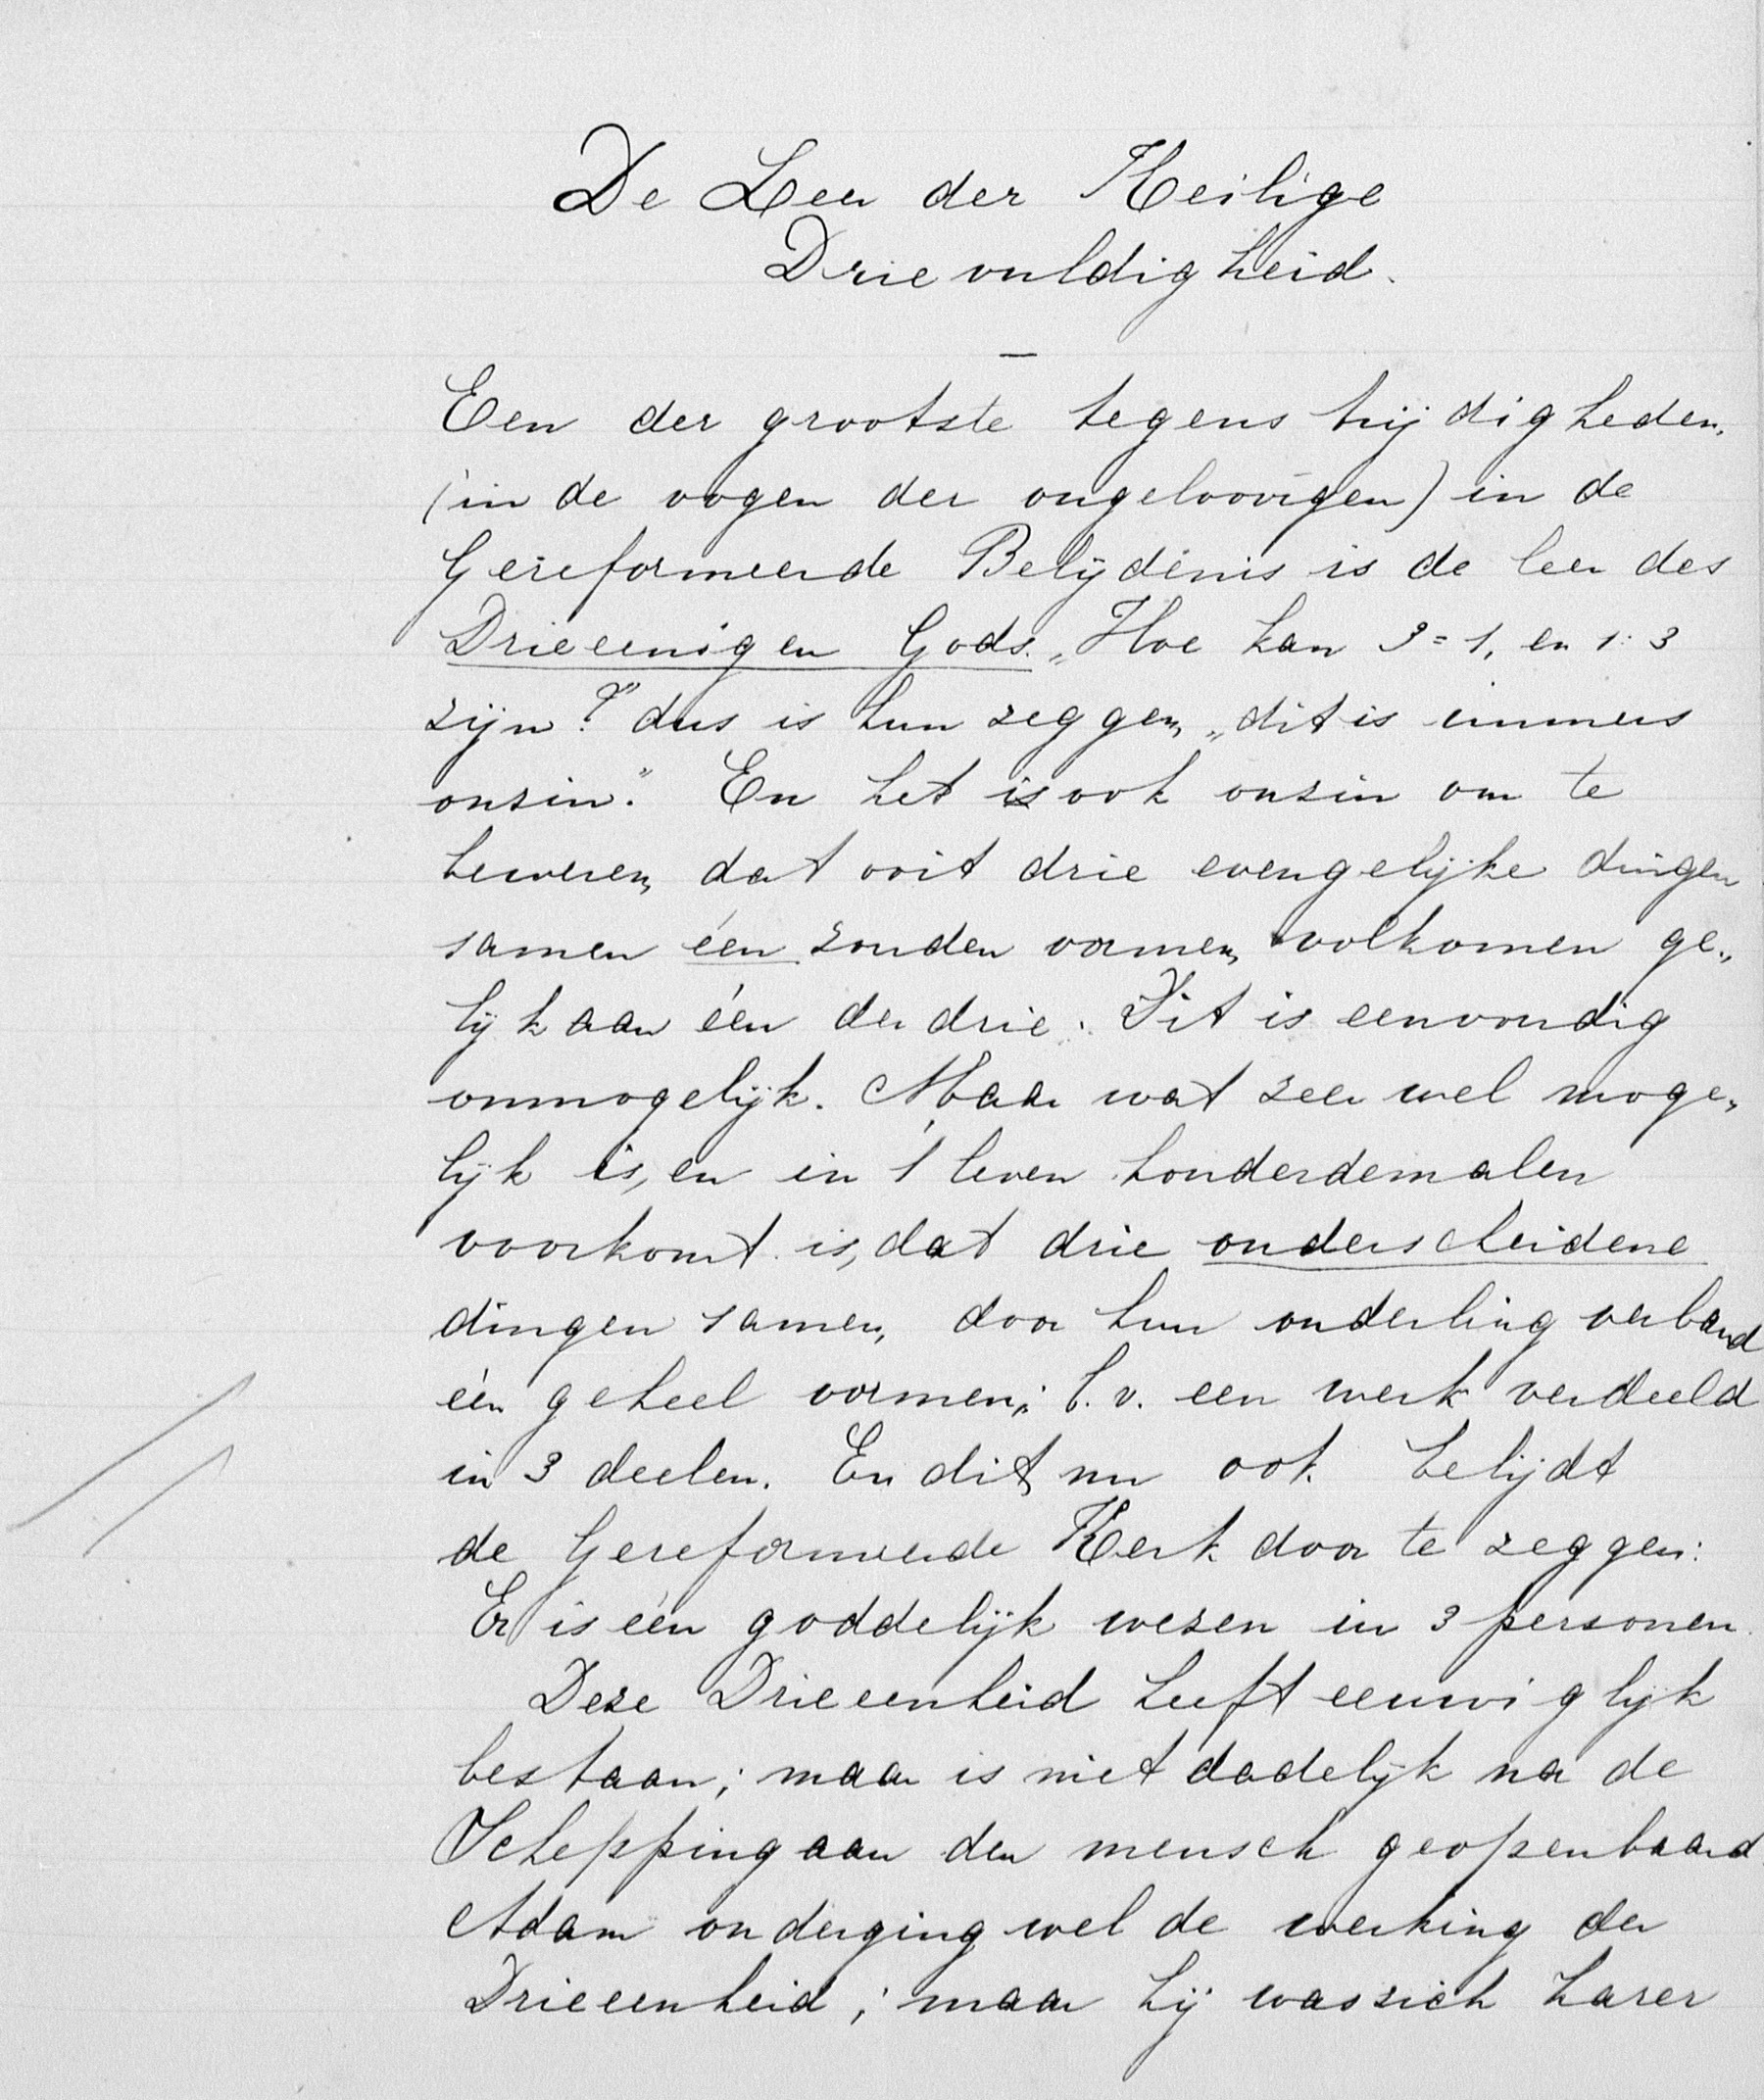 De Leer der Heilige
Drievuldigheid.
—
Een der grootste tegenstrijdigheden,
(in de oogen der ongeloovigen) in de
Gereformeerde Belijdenis is de leer des
Drieeenigen Gods. „Hoe kan 3 = 1, en 1 = 3
zijn?" dus is hun zeggen, „dit is immers
onzin." En het is ook onzin om te
beweren, dat ooit drie evengelijke dingen
samen één zouden vormen, volkomen ge„
lijk aan één der drie. Dit is eenvoudig
onmogelijk. Maar wat zeer wel moge„
lijk is, en in 't leven honderdemalen
voorkomt is, dat drie onderscheidene
dingen samen, door hun onderling verband
één geheel vormen; b.v. een werk verdeeld
in 3 deelen. En dit nu ook belijdt
de Gereformeerde Kerk door te zeggen:
Er is één goddelijk wezen in 3 personen.
Deze Drieeenheid heeft eeuwiglijk
bestaan; maar is niet dadelijk na de
Schepping aan den mensch geopenbaard
Adam onderging wel de werking der
Drieeenheid; maar hij was zich harer